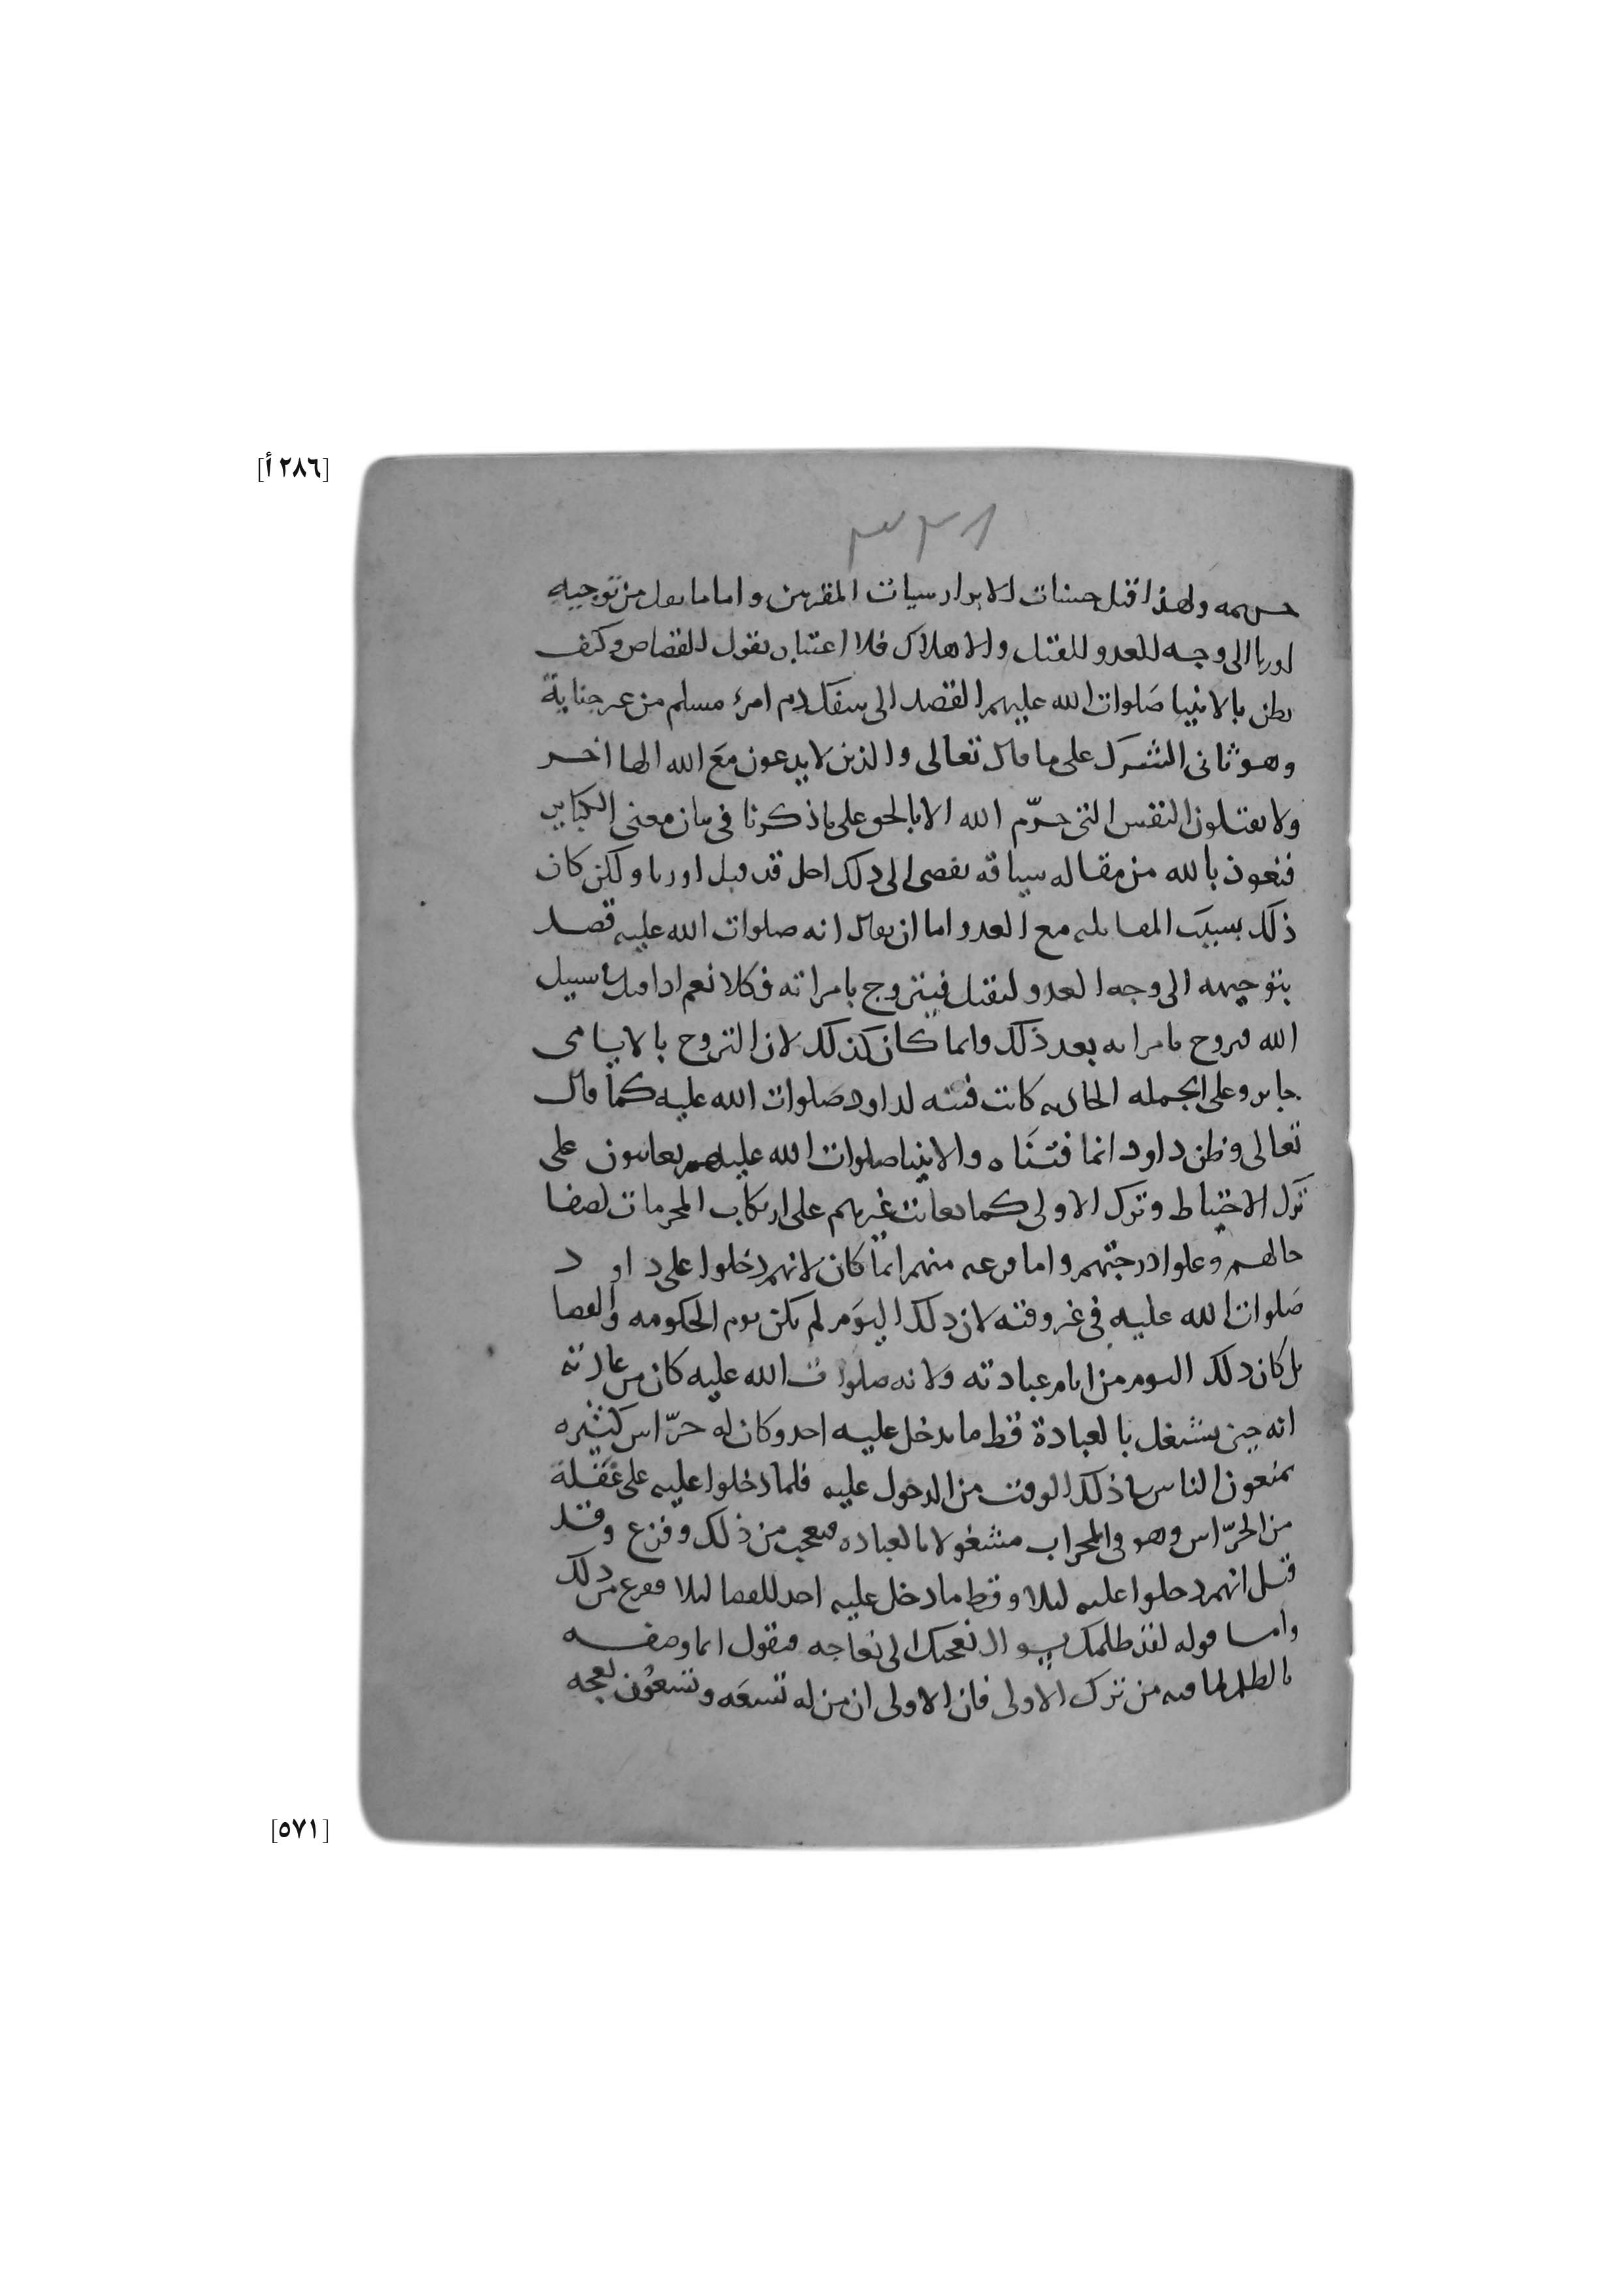 [٢٨٦ أ]
ولهذا قيل حسنات الابرار سيات المقربين واما ما نقل من توجيه
اوريا الى وجه للعدو للقتل والاهلاك فلا اعتبار بقول القصاص وكيف
يظن بالانبيا صلوات الله عليهم القصد الى سفك دم امرئ مسلم من غير جناية
وهو ثانى الشرك على ما قال تعالى والذين لا يدعون مع الله الها اخر
ولا يقتلون النفس التى حرّم الله الا بالحق على ما ذكرنا فى بيان معنى الكباير
فنعوذ بالله من مقاله سياقه يفضى الى ذلك اجل قد قبل اوريا ولكن كان
ذلك بسبب المقاتله مع العدو اما ان يقال انه صلوات الله عليه قصد
بتوجيهه الى وجه العدو ليقتل فيتزوج بامراته فكلا نعم اذا قتل فى سبيل
الله فتزوج بامراته بعد ذلك وانما كان كذلك لان التزوج بالايامى
جايز وعلى الجمله الحادثه كانت فتنه لداود صلوات الله عليه كما قال
تعالى وظن داود انما فتنَاه والانبيا صلوات الله عليهم يعاتبون على
ترك الاحتياط وترك الاولى كما يعاتب غيرهم على ارتكاب المحرمات لصفا
حالهم وعلوا درجتهم واما فزعه منهم انما كان لانهم دخلوا على داو د
صلوات الله عليه فى غير وقته لان ذلك اليوم لم يكن يوم الحكومه والقضا
بل كان ذلك اليوم من ايام عبادته ولانه صلوات الله عليه كان من عادته
انه حين يشتغل بالعبادة قط ما يدخل عليه احد وكان له حرّاس كثيره
يمنعون الناس فى ذلك الوقت من الدخول عليه فلما دخلوا عليه على غفلة
من الحرّاس وهو فى المحراب مشغولا بالعباده فتعجب من ذلك وفزع وقد
قيل انهم دخلوا عليه ليلا وقط ما دخل عليه احد للقضا ليلا ففزع من ذلك
واما قوله لقد ظلمك بسوال نعجتك الى نعاجه فنقول انما وصفه
بالظلم لما فيه من ترك الاولى فان الاولى ان من له تسعه وتسعون نعجه
[٥٧١]